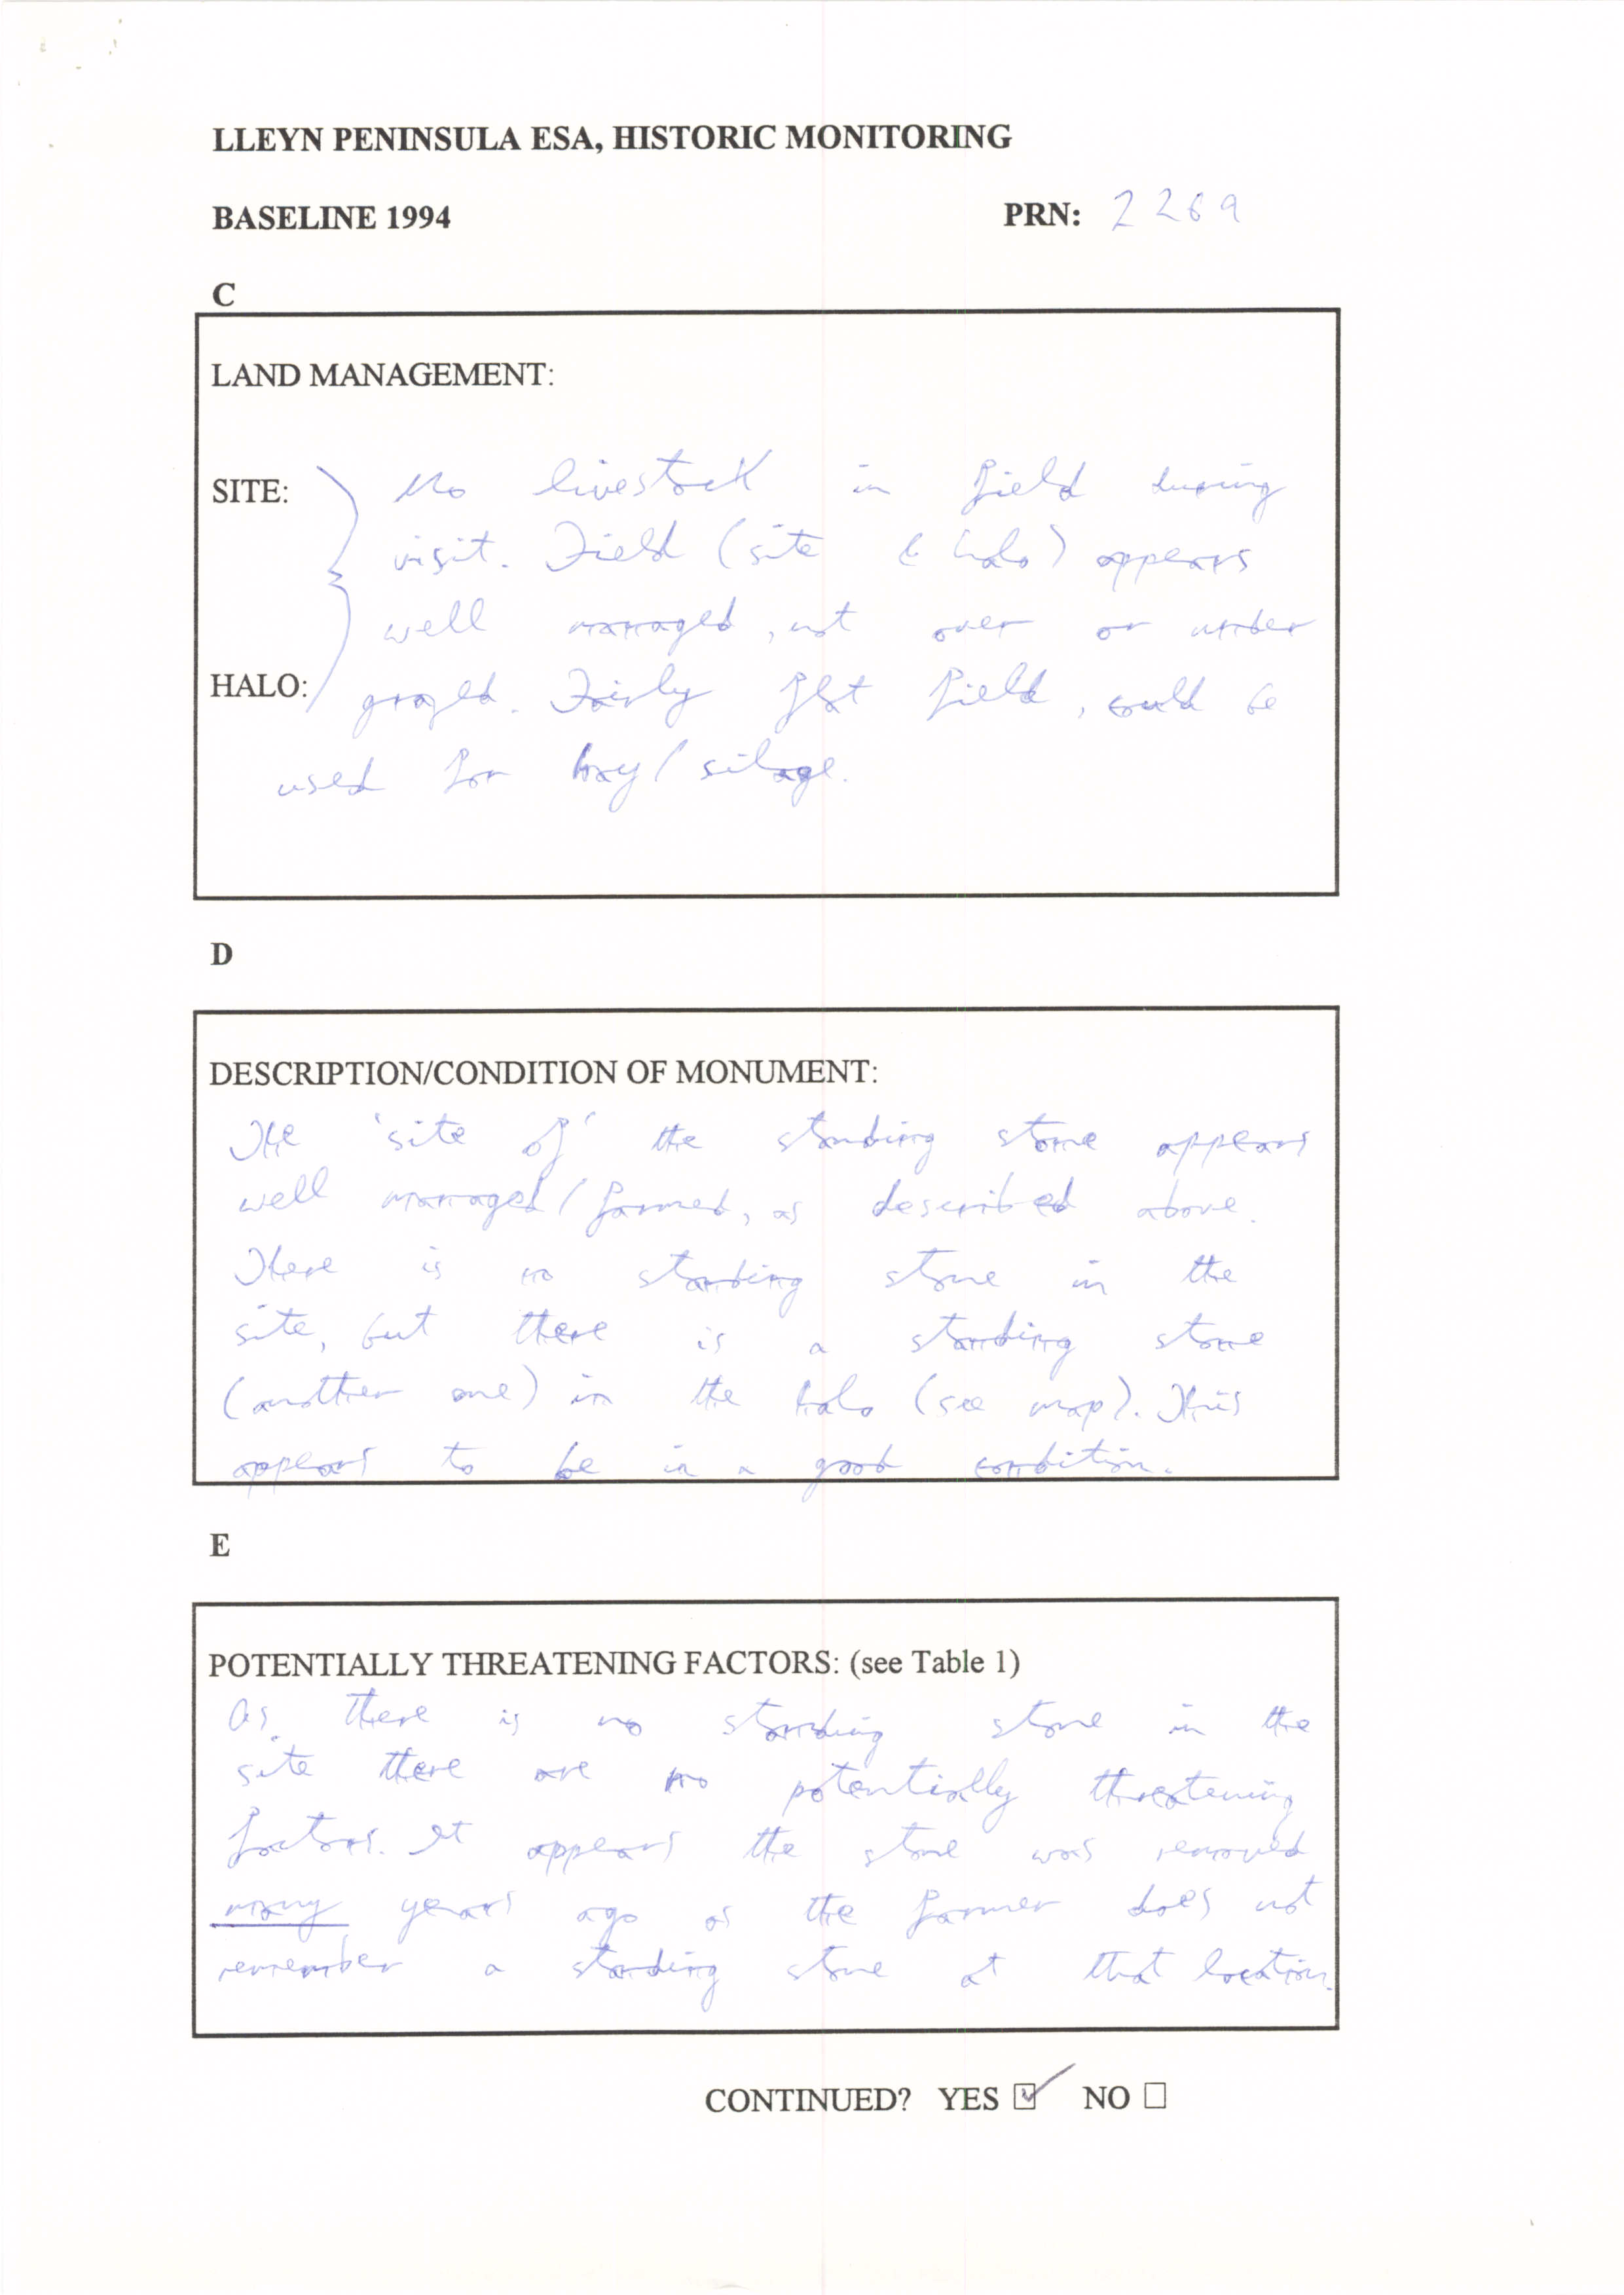 LLEYN PENINSULA ESA, HISTORIC MONITORING
BASELINE 1994 PRN: 2269
C
LAND MANAGEMENT:
SITE: No livestock in field during
visit. Field (site & halo) appears
well managed, not over or under
HALO: grazed. Fairly flat field, could be
used for hay/silage.
D
DESCRIPTION/CONDITION OF MONUMENT:
The 'site of' the standing stone appears
well managed/farmed, as described above.
There is no standing stone in the
site, but there is a standing stone
(another one) in the halo (see map). This
appears to be in a good condition.
E
POTENTIALLY THREATENING FACTORS: (see Table 1)
As there is no standing stone in the
site there are no potentially threatening
factors. It appears the stone was removed
many years ago as the farmer does not
remember a standing stone at that location.
CONTINUED? YES ☑ NO ☐